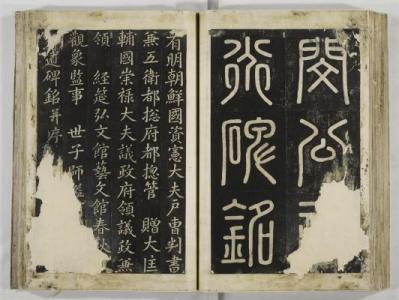 閔公
道碑銘
有明朝鮮國資憲大夫戶曹判書
兼五衛都摠府都摠管 贈大匡
輔國崇祿大夫議政府領議政兼
領 經筵弘文館藝文館春秋
觀象監事 世子師
道碑銘幷序